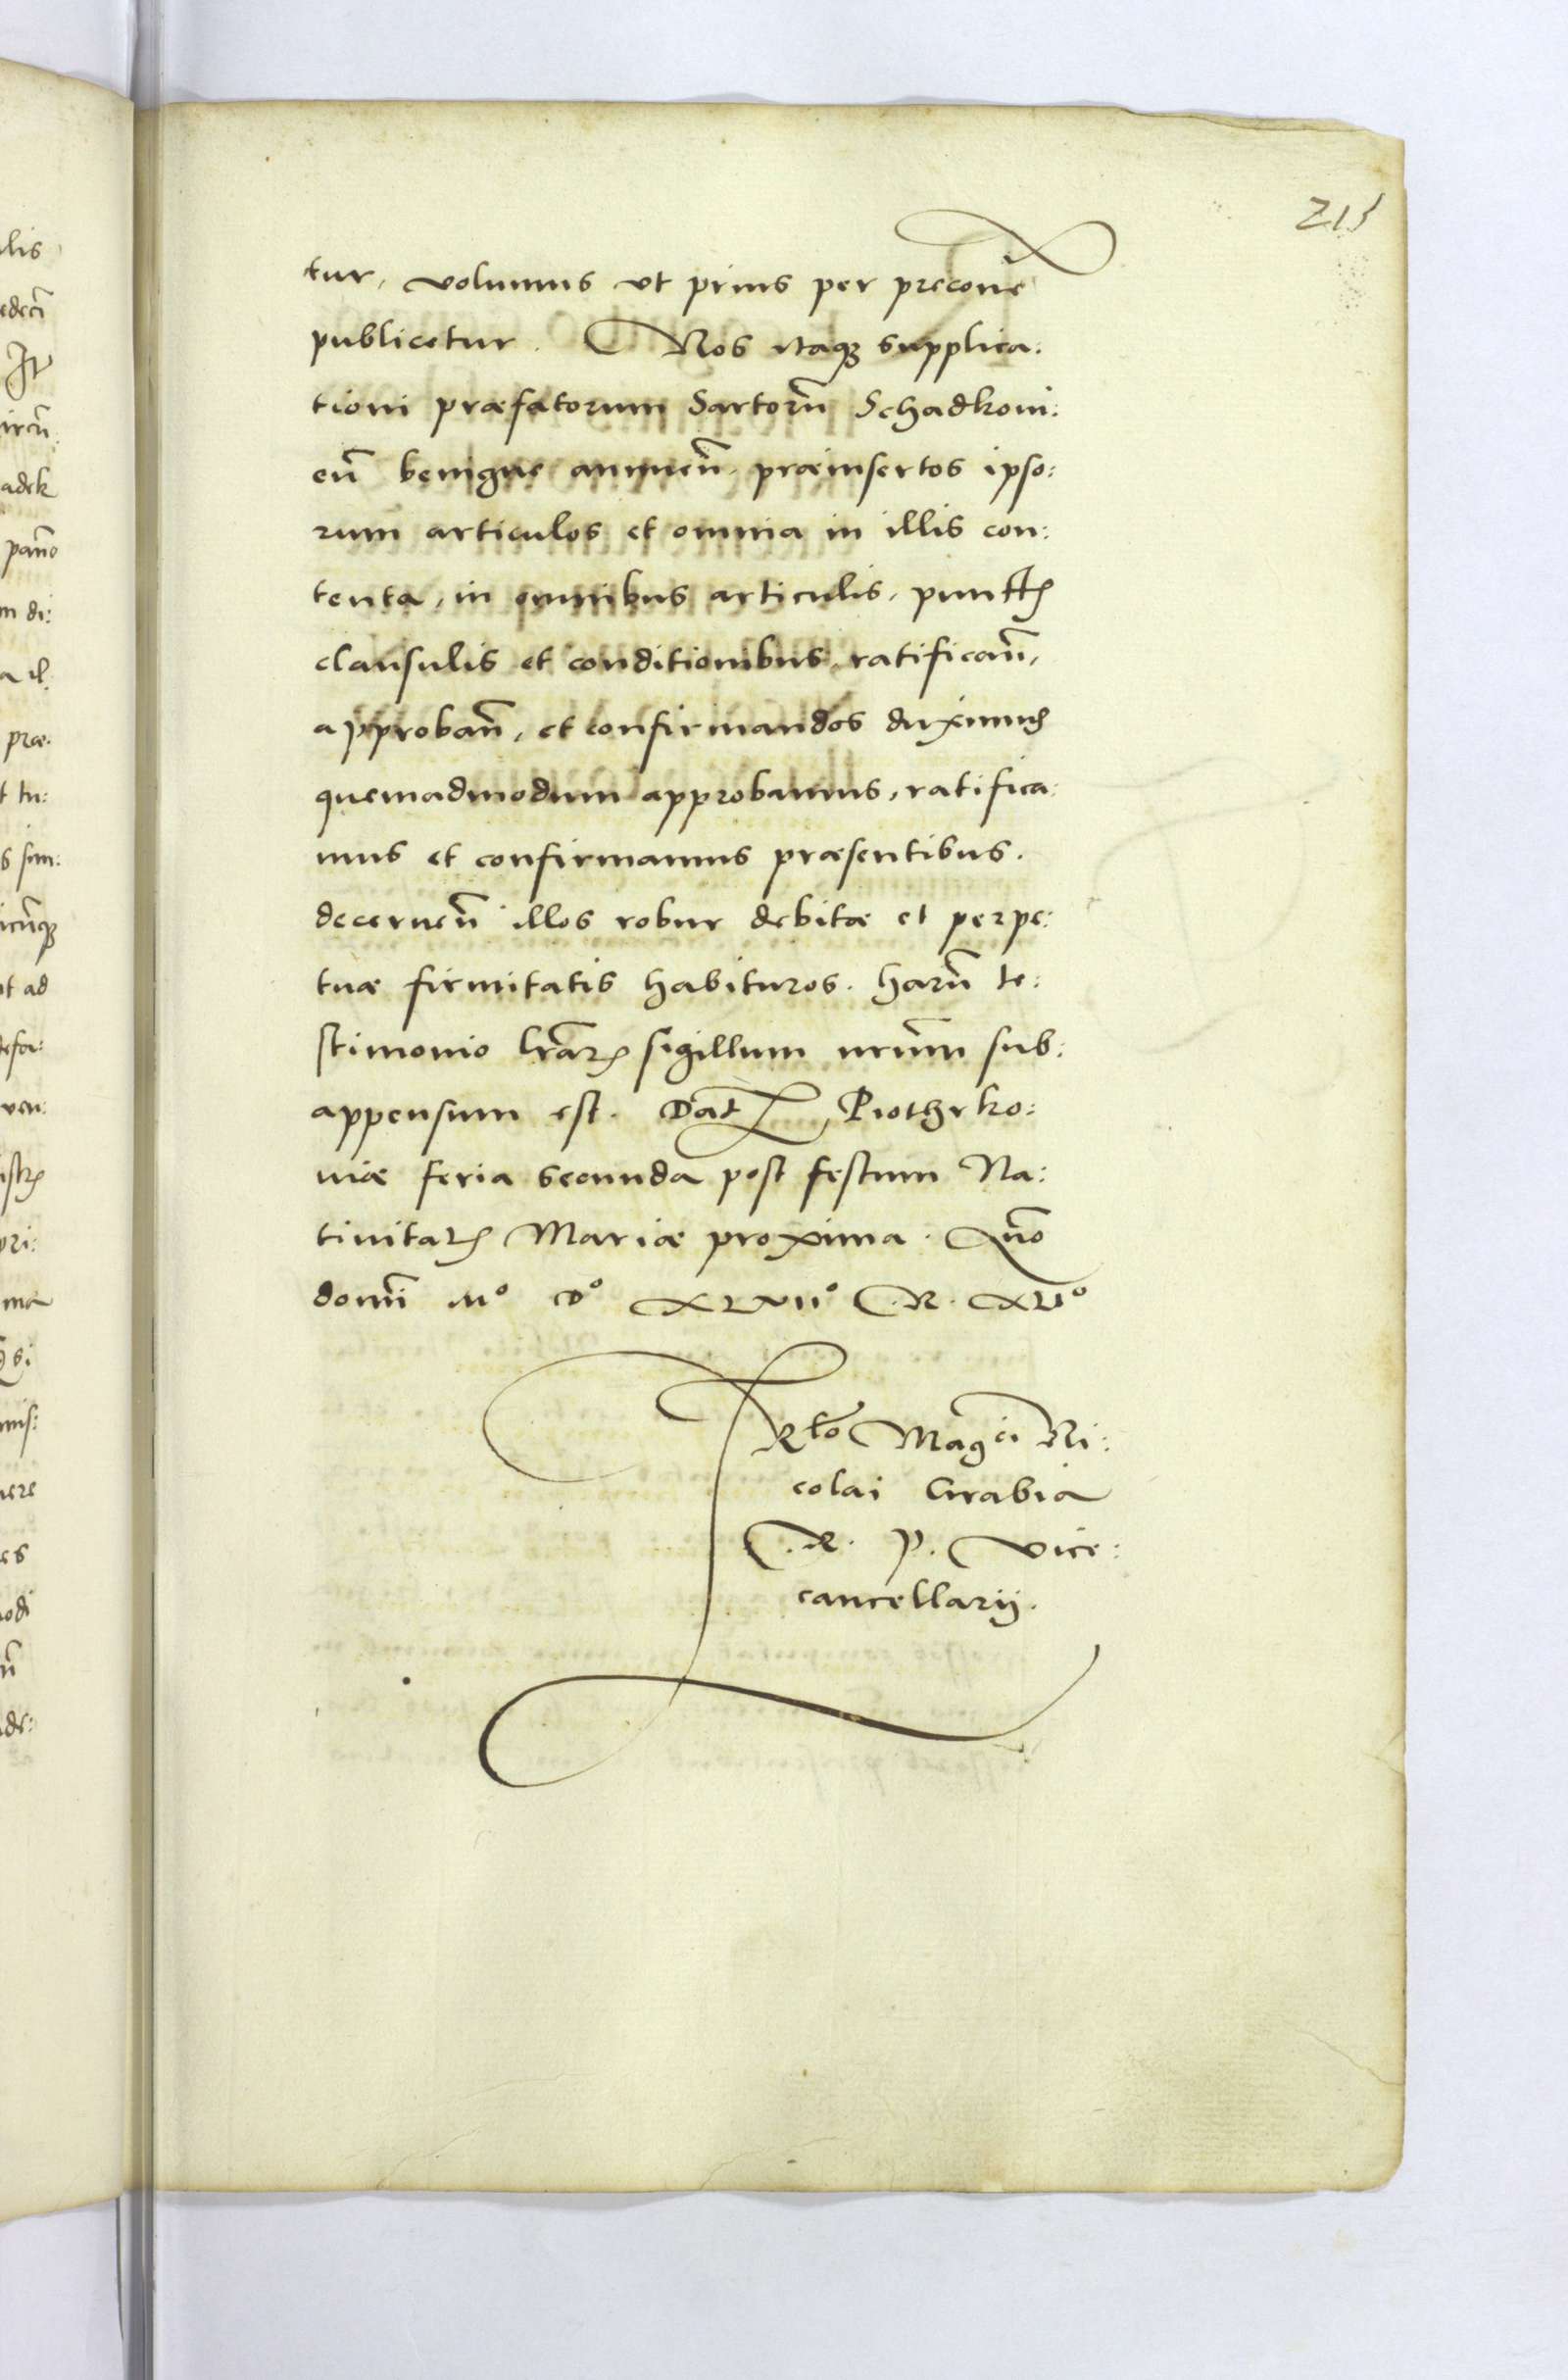 213
tur, volumus vt prius per preconē
publicetur. Nos itaq₃ supplica:
tioni præfatorum Sartorū Schadkoui:
eñ benigne annueñ, præinsertos ipso:
rum articulos et omnia in illis con:
tenta, in omnibus articulis, punctꝭ
clausulis et conditionibus, ratificañ,
approbañ, et confirmandos duximus
quemadmodum approbamus, ratifica:
mus et confirmamus præsentibus.
decerneñ illos robur debitæ et perpe:
tuæ firmitatis habituros. harū te:
stimonio lr̄arꝝ sigillum nrūm sub:
appensum est. Dat Piothrko:
uiæ feria secunda post festum Na:
tiuitatꝭ Mariæ proxima. Anō
domī Mº Dº XLVIIº R. XLIº
Rtō Magci Ni:
colai Grabia
R. P. Vice:
cancellarij.